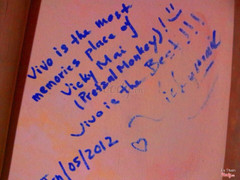 Vivo is the most
memories place of
Vicky Mai
(Pretzel Monkey)!!
Vivo is the Best!!!
/05/2012